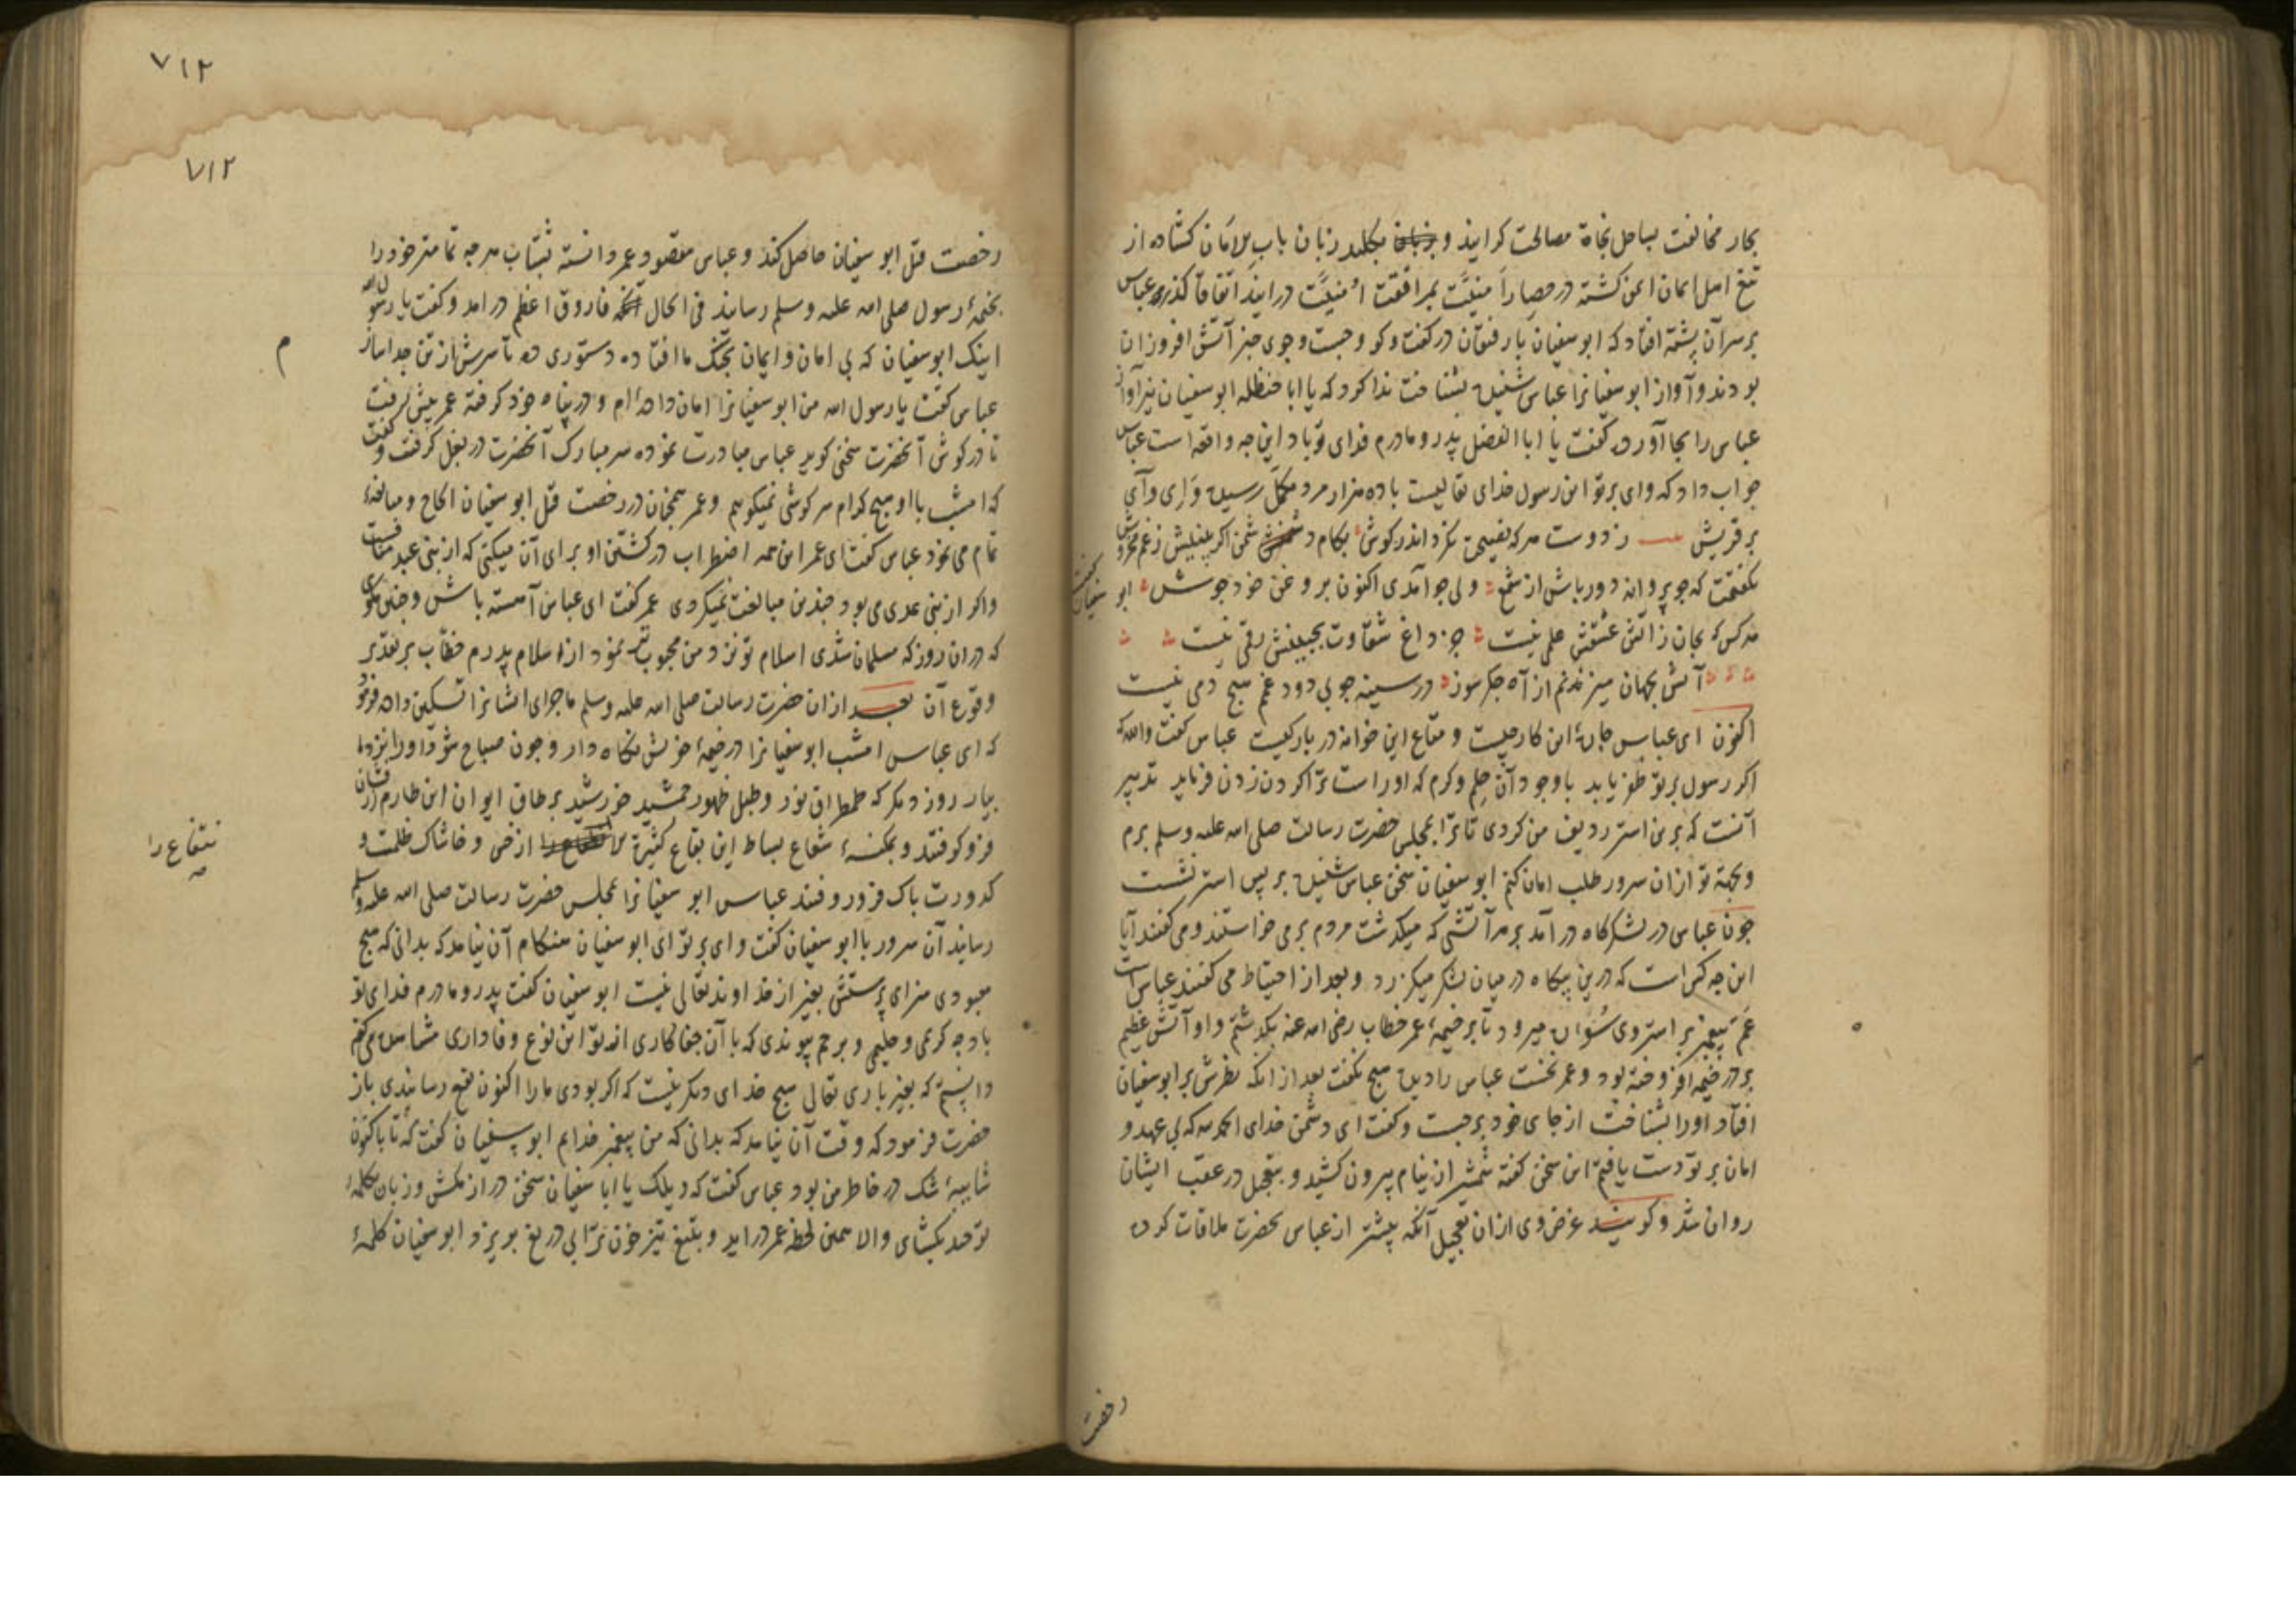 بحار مخالفت بساحل نجاة مصالحت کرایند و بکلید زبان باب امان کشاده از
تیغ اهل ایمان ایمن کشته در حصار اتفاقا کذر عباس
بر سر آن پشته افتاد که ابو سفیان با رفیقان در کفت و کو و جست و جوی خبر آتش افروزان
بودند و آواز ابو سفیانرا عباس شنیده بشناخت ندا کرد که یا ابا حنظله ابو سفیان نیز آواز
عباس را بجا آورده کفت یا ابا الفضل پدر و مادرم فدای تو باد این چه واقعه است عباس
جواب داد که وای بر تو این رسول خدای تعالیست با ده هزار مرد مکمل رسیده وای
بر قریش ز دوست هر که نصیحت نکرد اندر کوش بکام دشمن
نکفتمت که چو پروانه دور باش از شمع ولی چو آمدی اکنون برو غن خود جوش ابو
هر کس که بجان ز آتش عشقش علمی نیست جز داغ شقاوت بجبینش رقمی نیست
آتش بجهان میزندم از آه جکر سوز در سینه چو بی دود غم هیچ دمی نیست
اکنون ای عباس چارهٔ این کار چیست و متاع این خوانه در بار کیست عباس کفت والله که
اکر رسول بر تو ظفر یابد با وجود آن حلم و کرم که اوراست ترا کردن زدن فرماید تدبیر
آنست که برین استر ردیف من کردی تا ترا بمجلس حضرت رسالت صلی الله علیه وسلم برم
و بجهة تو از ان سرور طلب امان کنم ابو سفیان سخن عباس شنیده بر پس استر نشست
چون عباس در لشکرکاه در آمد بر هر آتشی که میکذشت مردم بر می خواستند و می کفتند آیا
این چه کس است که درین بیکاه در میان لشکر میکزرد و بعد از احتیاط می کفتند عباس است
عم پیغمبر بر استر وی سوار میرود تا بر خیمهٔ عمر خطاب رضی الله عنه بکذشتم و او آتش عظیم
بر در خیمه افروخته بود و عمر نخست عباس را دیده هیچ نکفت بعد از انکه نظرش بر ابو سفیان
افتاد اورا بشناخت از جای خود برجست و کفت ای دشمن خدای الحمد لله که بی عهد و
امان بر تو دست یافتم این سخن کفته شمشیر از نیام بیرون کشید و بتعجیل در عقب ایشان
روان شد و کویند غرض وی از ان تعجیل آنکه پیشتر از عباس بحضرت ملاقات کرده
رخصت
٧١٢
٧١٢
رخصت قتل ابو سفیان حاصل کند و عباس مقصود عمر دانسته بشتاب هر چه تمامتر خود را
بخیمهٔ رسول صلی الله علیه وسلم رساند فی الحال فاروق اعظم در امد و کفت یا رسول الله
اینک ابو سفیان که بی امان و ایمان بچنک ما افتاده دستوری ده تا سرش از تن جدا سازم
عباس کفت یا رسول الله من ابو سفیانرا امان داده ام و در پناه خود کرفته عمر پیش رفت
تا در کوش آنحضرت سخنی کوید عباس مبادرت نموده سر مبارک آنحضرت در بغل کرفت و کفت
که امشب با او هیچ کدام سر کوشی نمیکوییم و عمر همچنان در رخصت قتل ابو سفیان الحاح و مبالغهٔ
تمام می نمود عباس کفت ای عمر این همه اضطراب در کشتن او برای آن میکنی که از بنی عبد مناف است
و اکر از بنی عدی می بود چندین مبالغت نمیکردی عمر کفت ای عباس آهسته باش و چنین مکوی
که دران روز که مسلمان شدی اسلام تو نزد من محبوب تر نمود از اسلام پدرم خطاب بر تقدیر
وقوع آن بعد ازان حضرت رسالت صلی الله علیه وسلم ماجرای ایشانرا تسکین داده فرمود
که ای عباس امشب ابو سفیانرا در خیمهٔ خویش نکاه دار و چون صباح شود اورا نزد ما
بیار روز دیکر که طمطراق نور و طبل ظهور جمشید خورشید بر طاق ایوان این طارم زرفشان
فرو کوفتند و بمکنسهٔ شعاع بساط این بقاع از خس و خاشاک ظلمت و
کدورت پاک فرو روفتند عباس ابو سفیانرا بمجلس حضرت رسالت صلی الله علیه وسلم
رساند آن سرور با ابو سفیان کفت وای بر تو ای ابو سفیان هنکام آن نیامد که بدانی که هیچ
معبودی سزای پرستش بغیر از خداوند تعالی نیست ابو سفیان کفت پدر و مادرم فدای تو
باد چه کریمی و حلیمی و بر حم پیوندی که با آن جفاکاری از تو این نوع وفاداری مشاهده می کنم
دانستم که بغیر باری تعالی هیچ خدای دیکر نیست که اکر بودی مارا اکنون نفع رسانیدی باز
حضرت فرمود که وقت آن نیامد که بدانی که من پیغمبر خدایم ابو سفیان کفت که تا باکنون
شایبهٔ شک در خاطر من بود عباس کفت که ویلک یا ابا سفیان سخن دراز مکش و زبان بکلمهٔ
توحید بکشای والا همین لحظه عمر در اید و بتیغ تیز خون ترا بی دریغ بریزد ابو سفیان کلمهٔ